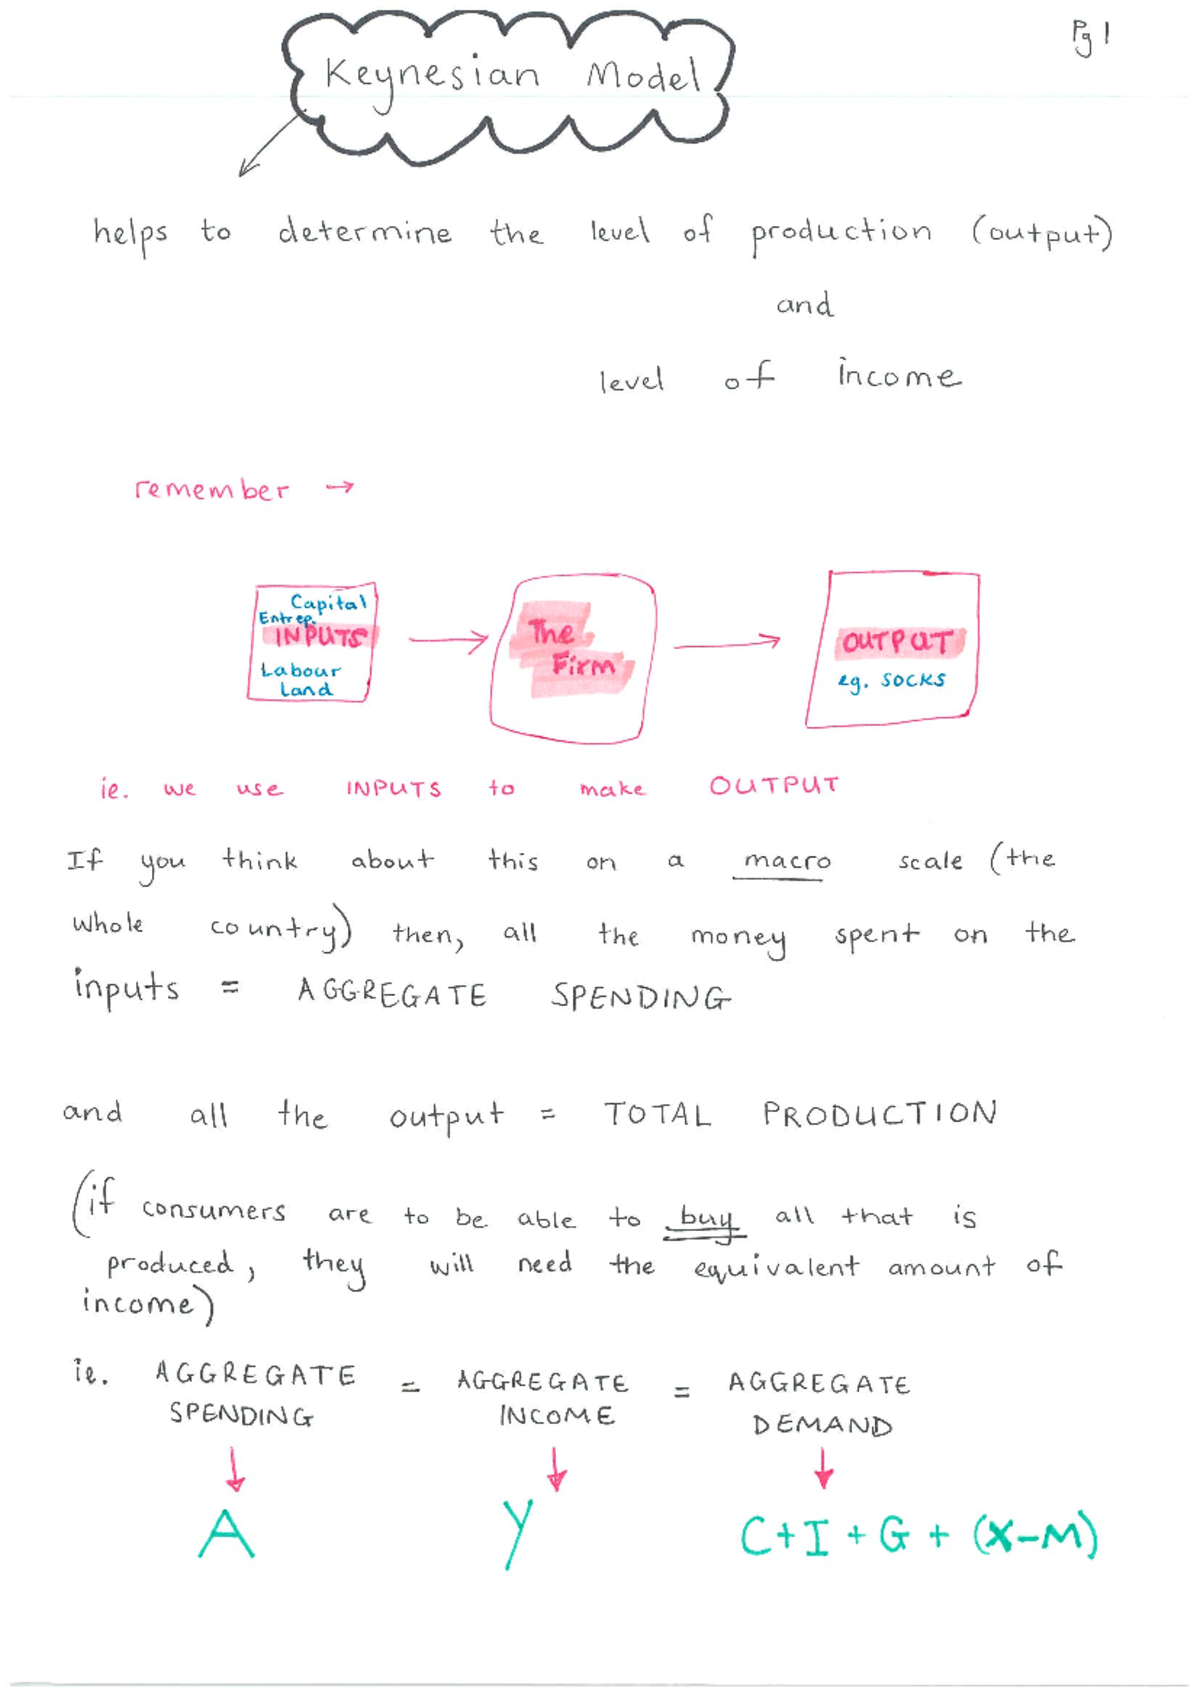 Pg 1
Keynesian Model
helps to determine the level of production (output)
and
level of income
remember →
Capital
Entrep.
INPUTS
Labour
Land
The
Firm
OUTPUT
eg. SOCKS
ie. we use INPUTS to make OUTPUT
If you think about this on a macro scale (the
whole country) then, all the money spent on the
inputs = AGGREGATE SPENDING
and all the output = TOTAL PRODUCTION
(if consumers are to be able to buy all that is
produced, they will need the equivalent amount of
income)
ie. AGGREGATE SPENDING = AGGREGATE INCOME = AGGREGATE DEMAND
A Y C+I+G+(X-M)